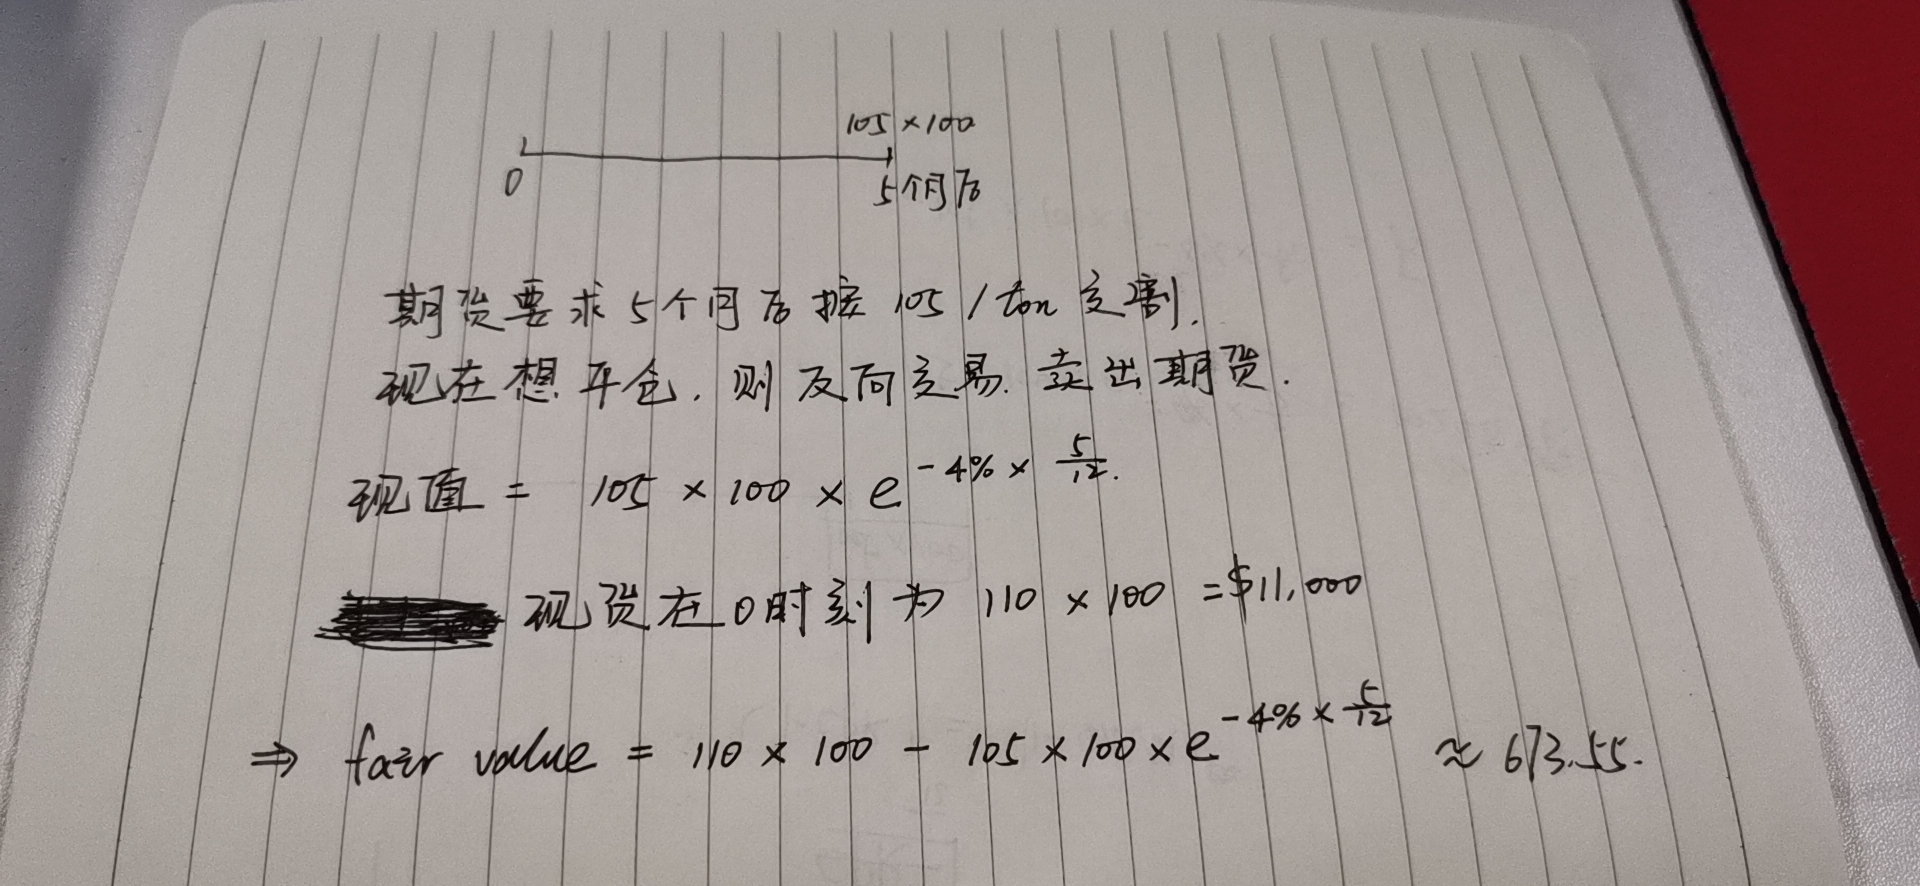 105 × 100
0
5个月后
期货要求5个月后按105/ton交割.
现在想平仓.则反向交易.卖出期货.
现值 = 105 × 100 × e^{-4% × 5/12}.
现货在0时刻为 110 × 100 = $11,000
⇒ fair value = 110 × 100 - 105 × 100 × e^{-4% × 5/12} ≈ 673.55.